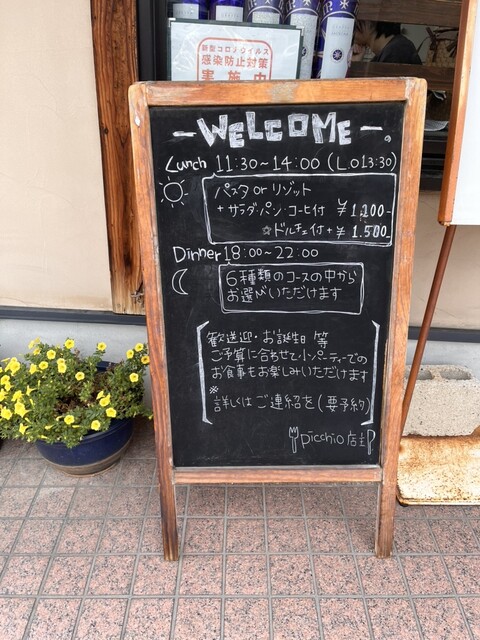 新型コロナウイルス
感染防止対策
実施中
-WELCOME-
Lunch 11:30~14:00 (L.O13:30)
パスタ or リゾット
+ サラダ・パン・コーヒー付 ¥1,200-
☆ドルチェ付+ ¥1,500
Dinner 18:00~22:00
6種類のコースの中から
お選びいただけます
歓送迎・お誕生日 等
ご予算に合わせて小パーティーでの
お食事もお楽しみいただけます
※
詳しくはご連絡を(要予約)
picchio 店主